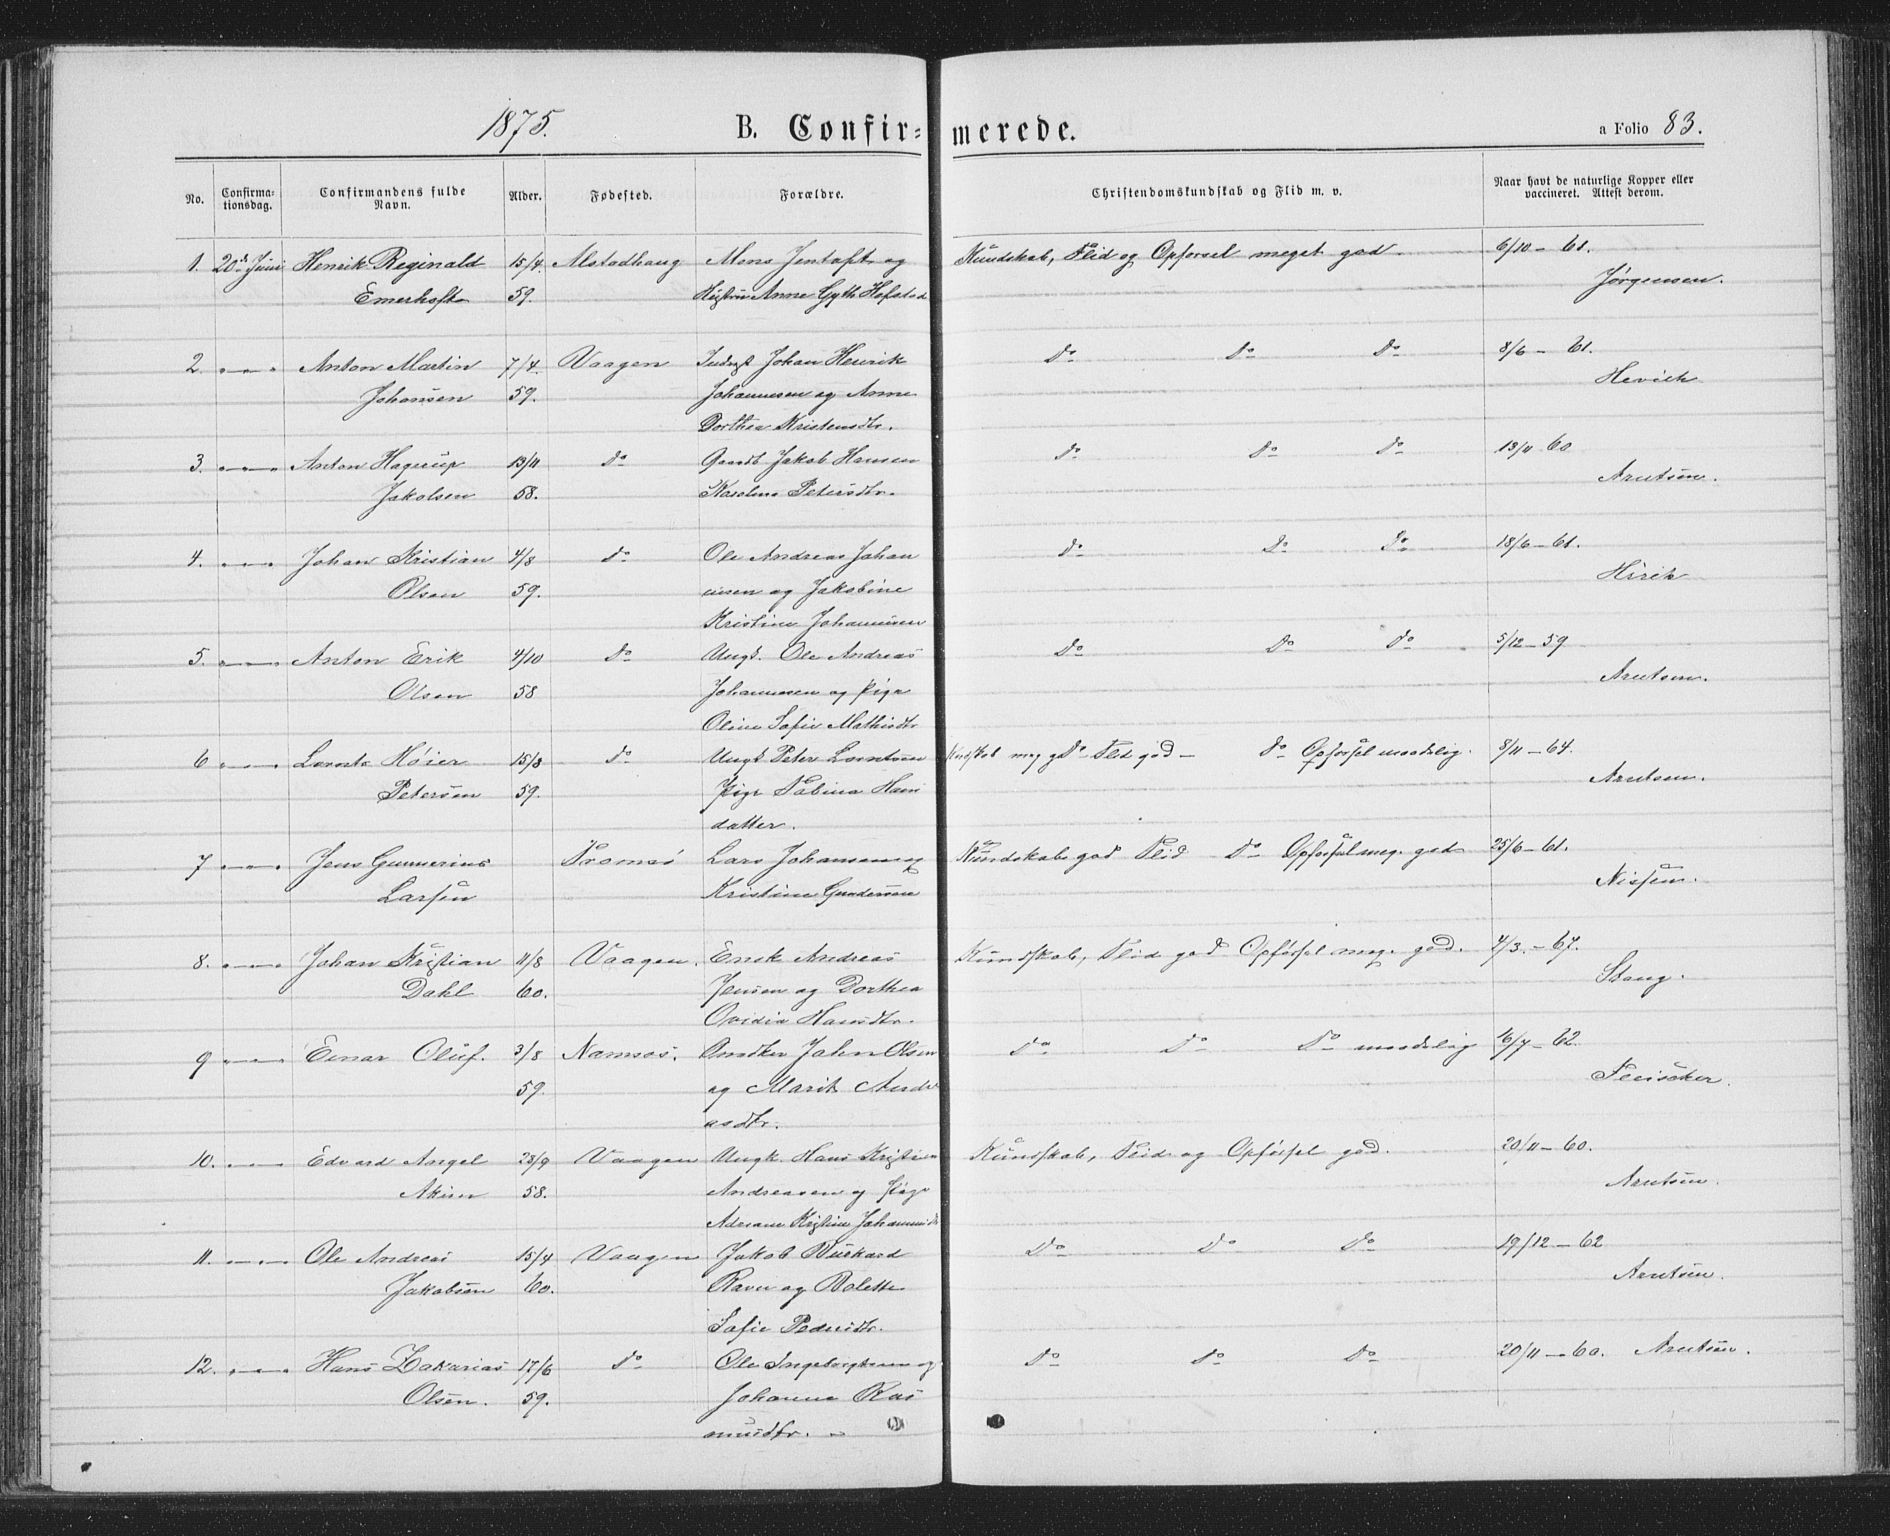 1875. B. Confir- merede. a Folio 83.
No. Confirma-tionsdag. Confirmandens fulde Navn. Alder. Fødested. Forældre. Christendomskundskab og Flid m. v. Naar havt de naturlige Kopper eller vaccineret. Attest derom.
1. 20de Juni Henrik Reginald 15/4 Alstadhaug Mons Jentoft og Kundskab, Flid og Opførsel meget god. 6/10 - 61.
Emerhoft 59. Hustru Anne Gyth Hofstad Jørgensen.
2. Anton Martin 7/4 Vaagen Johan Henrik do do do 8/6 - 61.
Johansen 59. Johannesen og Anne
Dorthea Kristensdtr.
3. Anton Hagerup 13/11 do Gaardb Jakob Hansen do do do 13/11 60
Jakobsen 58. Petersdtr. Arntsen.
4. Johan Kristian 4/8 do Ole Andreas Johan do do do 18/6 - 61.
Olsen 59. nesen og Jakobine
Kristine Johannesen
5. Anton Erik 4/10 do Ungk. Ole Andreas do do do 5/12 - 59
Olsen 58 Johannesen og Pige Arntsen.
Oline Sofie Mathisdtr
6 Høier 15/8 do Ungk Peter Lorntsen Kundskab meg god Flid god - do Opførsel maadelig. 8/11 - 64.
Petersen 59. Pige Hans Arntsen.
datter.
7 Jens Gunnerius Tromsø Lars Johansen og Kundskab god Flid do Opførsel meg. god 25/6 - 61.
Larsen Kristine Gundersen Nissen.
8. Johan Kristian 11/8 Vaagen. Andreas Kundskab, Flid god Opførsel meg. god. 4/3. - 67.
Dahl 60. Jensen og Dorthea Stang.
Ovidia Hansdtr.
9 Einar Oluf. 3/8 Namsos. John Olsen do do do maadelig 16/7 - 62.
59. og Marit Andre Fleischer.
asdtr.
10. Edvard Angel 28/9 Vaagen Ungk. Hans Kristian Kundskab, Flid og Opførsel god. 20/11 - 60.
58. Andreasen og Pige Arntsen.
Kristine
11. Ole Andreas 15/4 Vaagen Jakob Burkard do do do 19/12 - 62
Jakobsen 60. Ravn og Bolette Arntsen.
Sofie Pedersdtr.
12. Hans Zakarias 17/6 do Ole Ingebrigtsen og do do do 20/11 - 60. Arntsen.
Olsen. 59. Johanna Ras
musdtr.